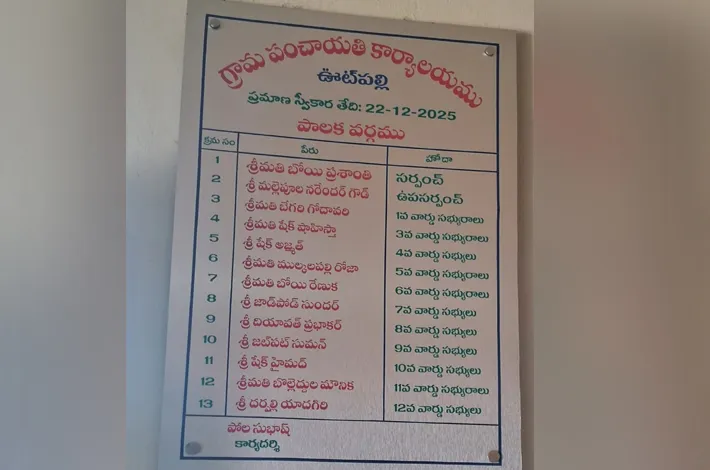 గ్రామ పంచాయతి కార్యాలయము
ఊట్‌పల్లి
ప్రమాణ స్వీకార తేది: 22-12-2025
పాలక వర్గము
క్రమ సం పేరు హోదా
1 శ్రీమతి బోయి ప్రశాంతి సర్పంచ్
2 శ్రీ మల్లెపూల నరేందర్ గౌడ్ ఉపసర్పంచ్
3 శ్రీమతి బేగరి గోదావరి 1వ వార్డు సభ్యురాలు
4 శ్రీమతి షేక్ షాహిస్తా 3వ వార్డు సభ్యురాలు
5 శ్రీ షేక్ అజ్మత్ 4వ వార్డు సభ్యులు
6 శ్రీమతి ముల్కలపల్లి రోజా 5వ వార్డు సభ్యురాలు
7 శ్రీమతి బోయి రేణుక 6వ వార్డు సభ్యురాలు
8 శ్రీ జాడ్‌పోడ్ సుందర్ 7వ వార్డు సభ్యులు
9 శ్రీ దియావత్ ప్రభాకర్ 8వ వార్డు సభ్యులు
10 శ్రీ జట్‌పట్ సుమన్ 9వ వార్డు సభ్యులు
11 శ్రీ షేక్ హైమద్ 10వ వార్డు సభ్యులు
12 శ్రీమతి బొల్లెద్దుల మౌనిక 11వ వార్డు సభ్యురాలు
13 శ్రీ దర్పల్లి యాదగిరి 12వ వార్డు సభ్యులు
పోల సుభాష్
కార్యదర్శి